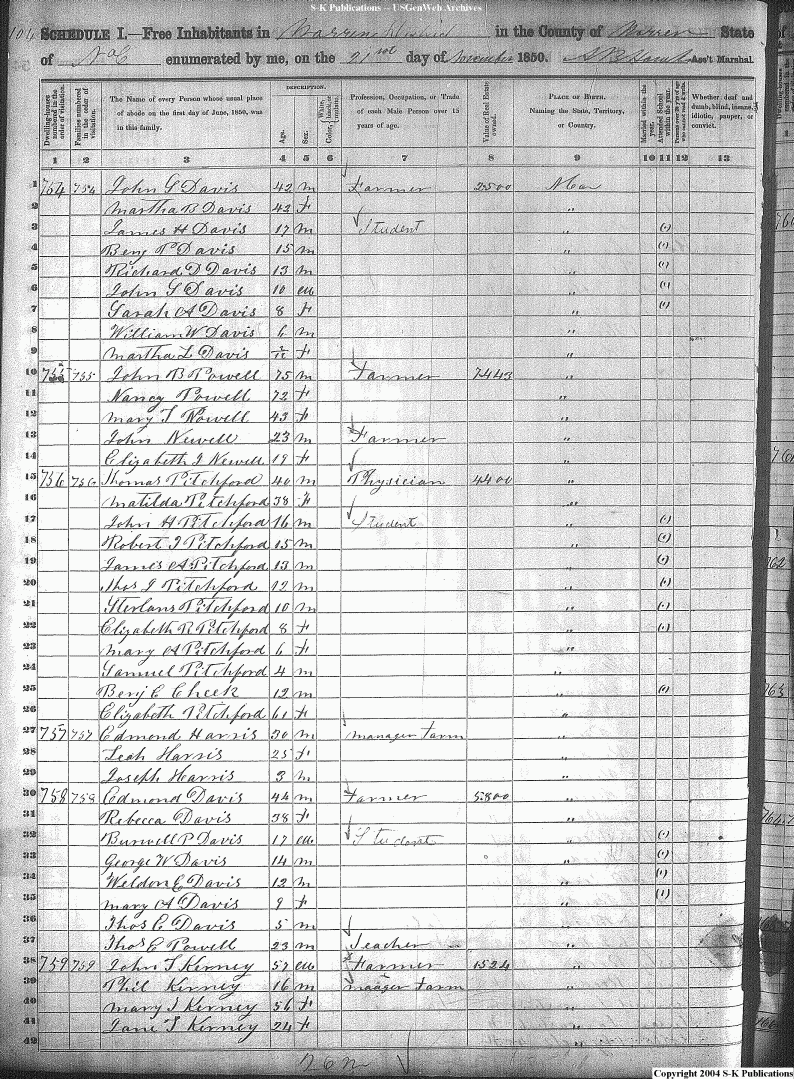 S-K Publications -- USGenWeb Archives
104 SCHEDULE I.—Free Inhabitants in Warren District in the County of Warren State
of N. C. enumerated by me, on the 21 day of November 1850. Ass't Marshal.
Dwelling-houses numbered in the order of visitation. Families numbered in the order of visitation. The Name of every Person whose usual place of abode on the first day of June, 1850, was in this family. DESCRIPTION. Age. Sex. Color, White, black, or mulatto. Profession, Occupation, or Trade of each Male Person over 15 years of age. Value of Real Estate owned. PLACE OF BIRTH. Naming the State, Territory, or Country. Married within the year. Attended School within the year. Persons over 20 y'rs of age who cannot read & write. Whether deaf and dumb, blind, insane, idiotic, pauper, or convict.
1 2 3 4 5 6 7 8 9 10 11 12 13
1 754 754 John S Davis 42 m Farmer 2500 N Car
2 Martha B Davis 42 f "
3 James H Davis 17 m Student " (1)
4 Benj P Davis 15 m " (1)
5 Richard D Davis 13 m " (1)
6 John S Davis 10 m " (1)
7 Sarah A Davis 8 f " (1)
8 William W Davis 6 m "
9 Martha L Davis f "
10 755 755 John B Powell 75 m Farmer 7443 "
11 Nancy Powell 72 f "
12 Mary T Powell 43 f "
13 John Newell 23 m Farmer "
14 Elizabeth J Newell 19 f "
15 756 756 Thomas Pitchford 40 m Physician 4400 "
16 Matilda Pitchford 38 f "
17 John H Pitchford 16 m Student " (1)
18 Robert J Pitchford 15 m " (1)
19 James A Pitchford 13 m " (1)
20 Thos J Pitchford 12 m " (1)
21 Pitchford 10 m " (1)
22 Elizabeth R Pitchford 8 f " (1)
23 Mary A Pitchford 6 f "
24 Samuel Pitchford 4 m "
25 Benj E Cheek 12 m " (1)
26 Elizabeth Pitchford 61 f "
27 757 757 Edmond Harris 30 m manager farm "
28 Leah Harris 25 f "
29 Joseph Harris 3 m "
30 758 758 Edmond Davis 44 m Farmer 5800 "
31 Rebecca Davis 38 f "
32 Burwell P Davis 17 m Student " (1)
33 George W Davis 14 m " (1)
34 Weldon E Davis 12 m " (1)
35 Mary A Davis 9 f " (1)
36 Thos C Davis 5 m "
37 Thos C Powell 23 m Teacher "
38 759 759 John T Kerney 57 m Farmer 1524 "
39 Phil Kerney 16 m manager farm "
40 Mary J Kerney 56 f "
41 Jane T Kerney 24 f "
42
Copyright 2004 S-K Publications